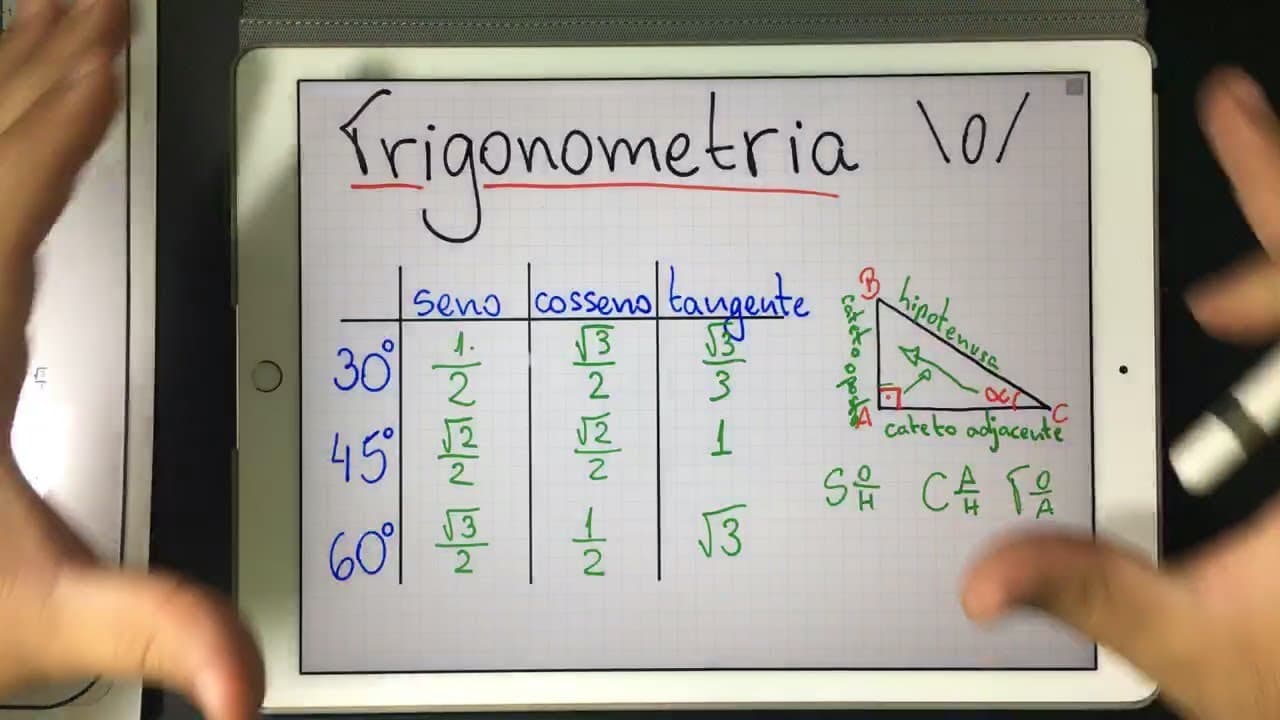 Trigonometria \o/
seno cosseno tangente
30° 1/2 √3/2 √3/3
45° √2/2 √2/2 1
60° √3/2 1/2 √3
B
hipotenusa
cateto oposto
α
A
C
cateto adjacente
S O/H C A/H T O/A